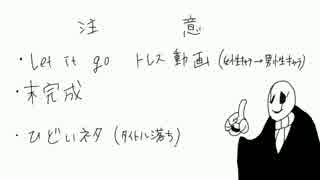 注意
・Let it go トレス動画(女性キャラ→男性キャラ)
・未完成
・ひどいネタ(タイトル落ち)